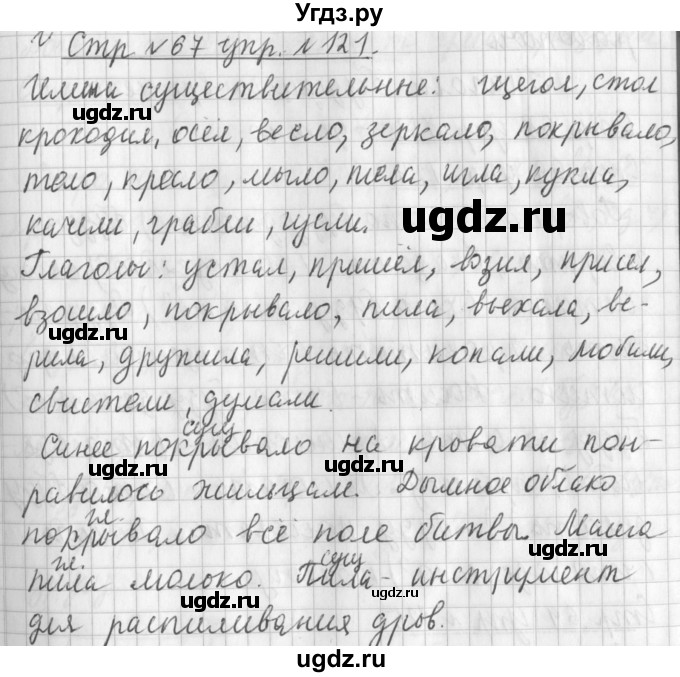 Угдз.ру
Стр №67 упр. №121.
Имена существительные: щегол, стол
крокодил, осёл, весло, зеркало, покрывало,
тело, кресло, мыло, пила, игла, кукла,
качели, грабли, гусли.
ugdz.ru
Глаголы: устал, пришёл, возил, присел,
взошло, покрывало, пила, выехала, ве-
ugdz.ru
ugdz.ru
рила, дружила, решили, копали, любили,
свистели, думали.
сущ
Синее покрывало на кровати пон-
ugdz.ru
ugdz.ru
равилось жильцам. Дымное облако
гл.
покрывало всё поле битвы. Маша
ugdz.ru
гл. сущ
пила молоко. Пила - инструмент
ugdz.ru
ugdz.ru
для распиливания дров.
ugdz.ru
ugdz.ru